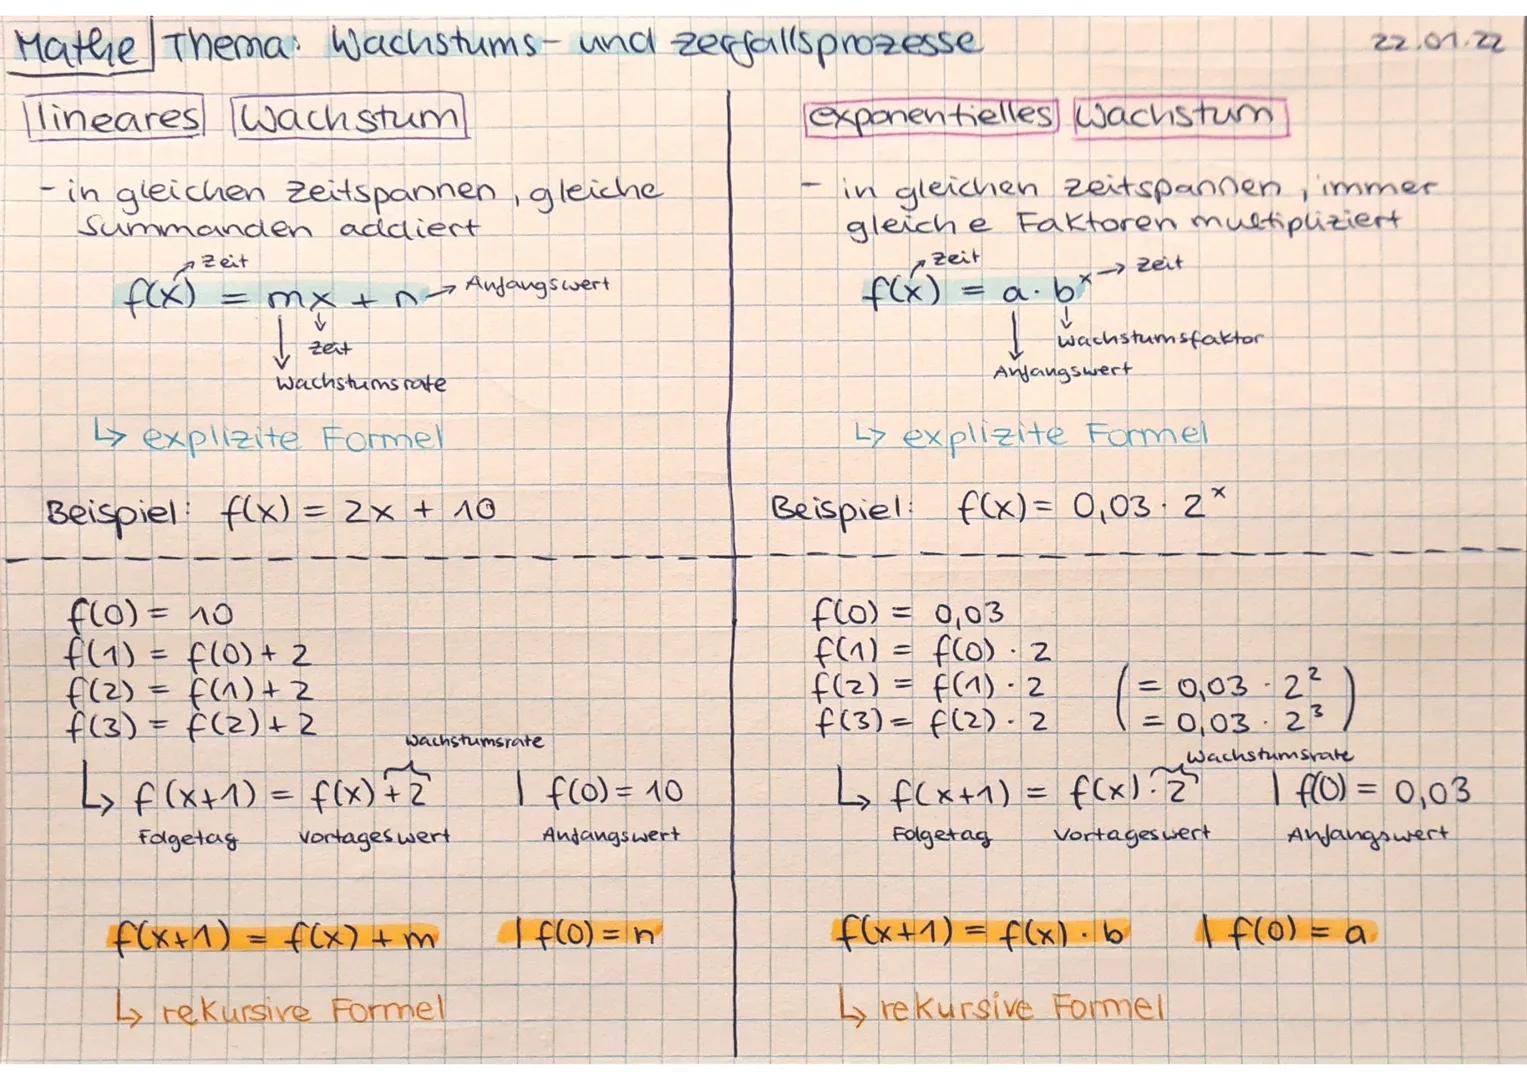 Mathe | Thema: Wachstums- und zerfallsprozesse 22.01.22
lineares Wachstum
- in gleichen Zeitspannen, gleiche
Summanden addiert
Zeit
f(x) = mx + n → Anfangswert
Zeit
Wachstumsrate
↳ explizite Formel
Beispiel: f(x) = 2x + 10
f(0) = 10
f(1) = f(0) + 2
f(2) = f(1) + 2
f(3) = f(2) + 2
Wachstumsrate
↳ f(x+1) = f(x) + 2 | f(0) = 10
Folgetag Vortageswert Anfangswert
f(x+1) = f(x) + m | f(0) = n
↳ rekursive Formel
exponentielles Wachstum
- in gleichen Zeitspannen, immer
gleiche Faktoren multipliziert
Zeit
f(x) = a · bˣ → Zeit
Wachstumsfaktor
Anfangswert
↳ explizite Formel
Beispiel: f(x) = 0,03 · 2ˣ
f(0) = 0,03
f(1) = f(0) · 2
f(2) = f(1) · 2 (= 0,03 · 2²)
f(3) = f(2) · 2 (= 0,03 · 2³)
Wachstumsrate
↳ f(x+1) = f(x) · 2 | f(0) = 0,03
Folgetag Vortageswert Anfangswert
f(x+1) = f(x) · b | f(0) = a
↳ rekursive Formel